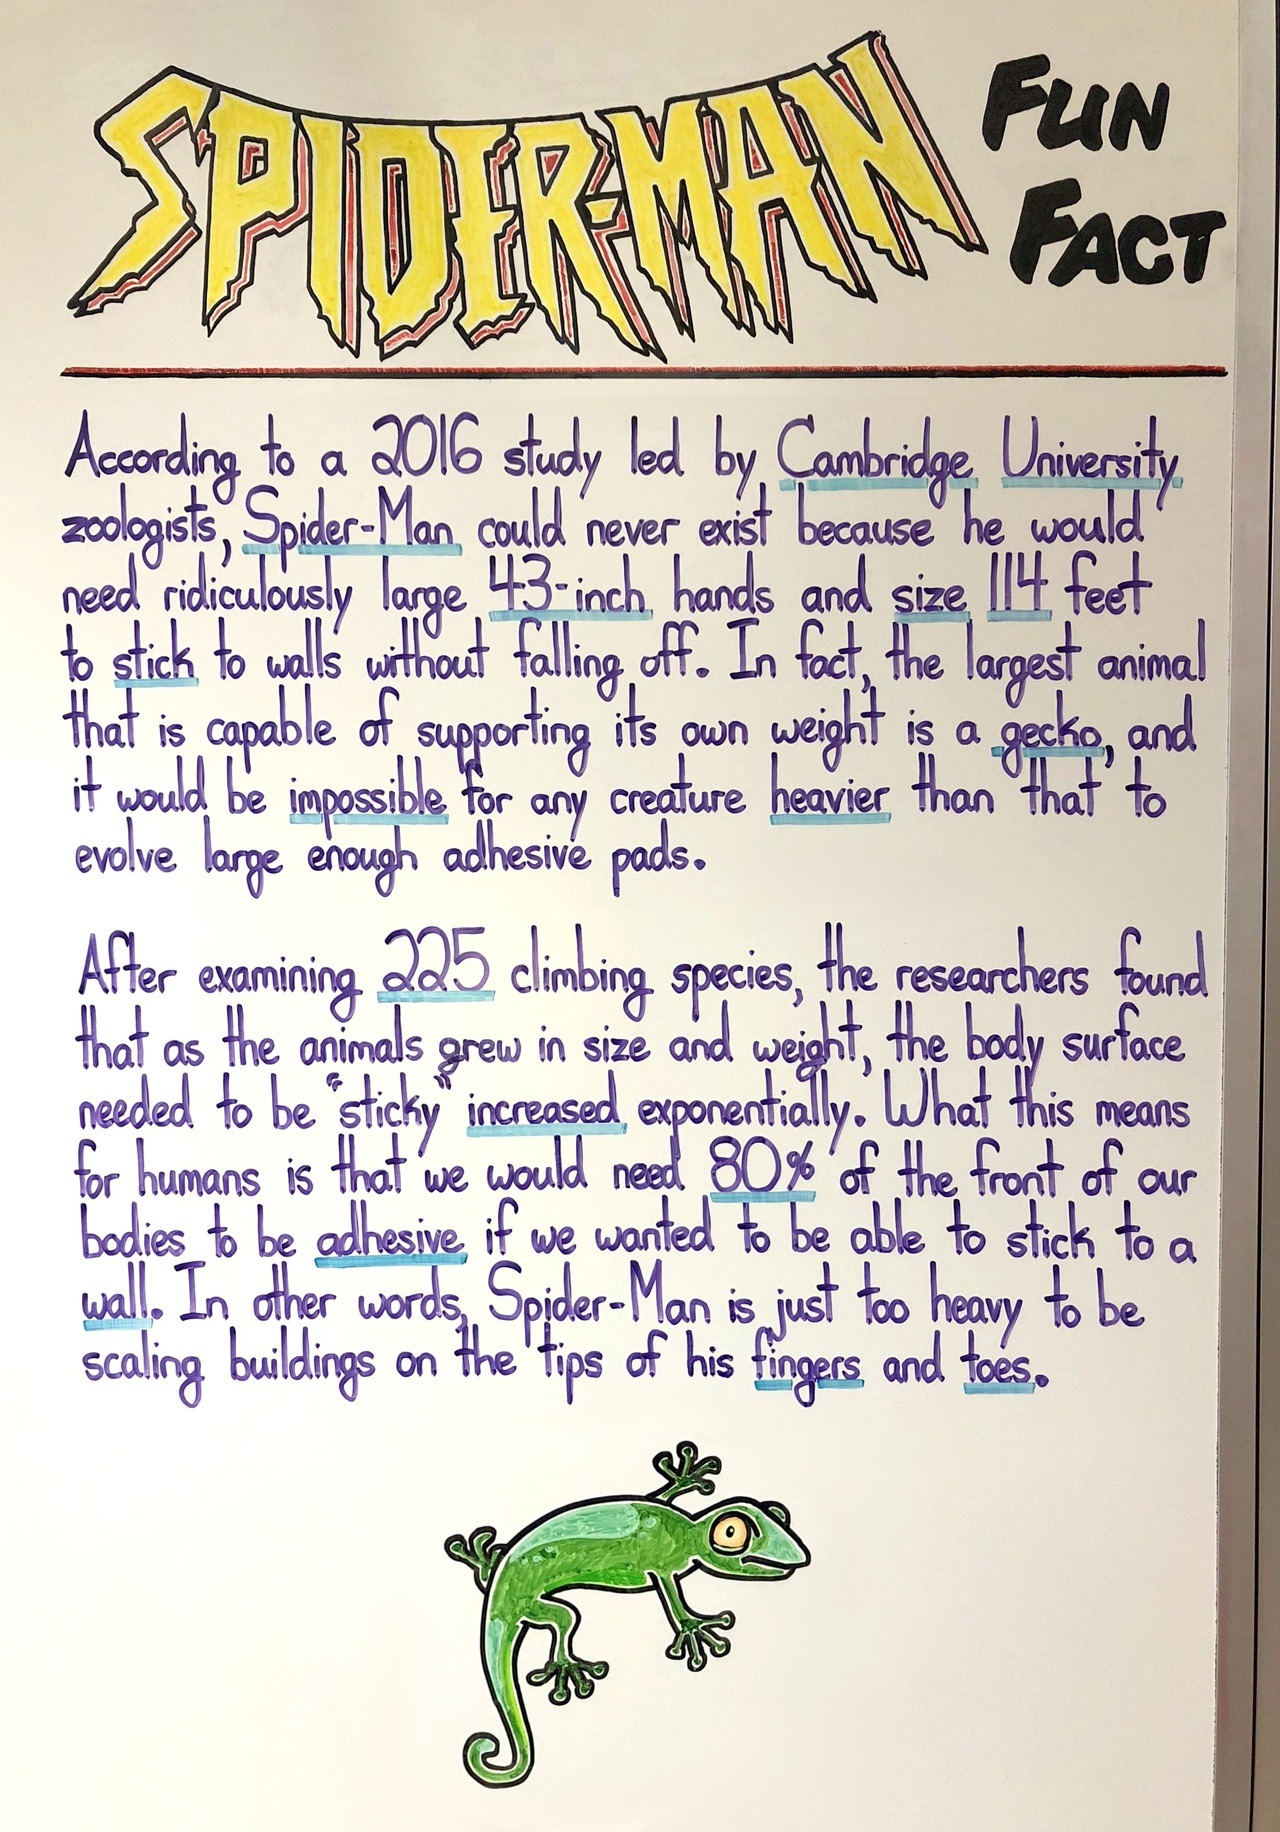 SPIDER-MAN FUN
FACT
According to a 2016 study led by Cambridge University
zoologists, Spider-Man could never exist because he would
need ridiculously large 43-inch hands and size 114 feet
to stick to walls without falling off. In fact, the largest animal
that is capable of supporting its own weight is a gecko, and
it would be impossible for any creature heavier than that to
evolve large enough adhesive pads.
After examining 225 climbing species, the researchers found
that as the animals grew in size and weight, the body surface
needed to be "sticky" increased exponentially. What this means
for humans is that we would need 80% of the front of our
bodies to be adhesive if we wanted to be able to stick to a
wall. In other words, Spider-Man is just too heavy to be
scaling buildings on the tips of his fingers and toes.